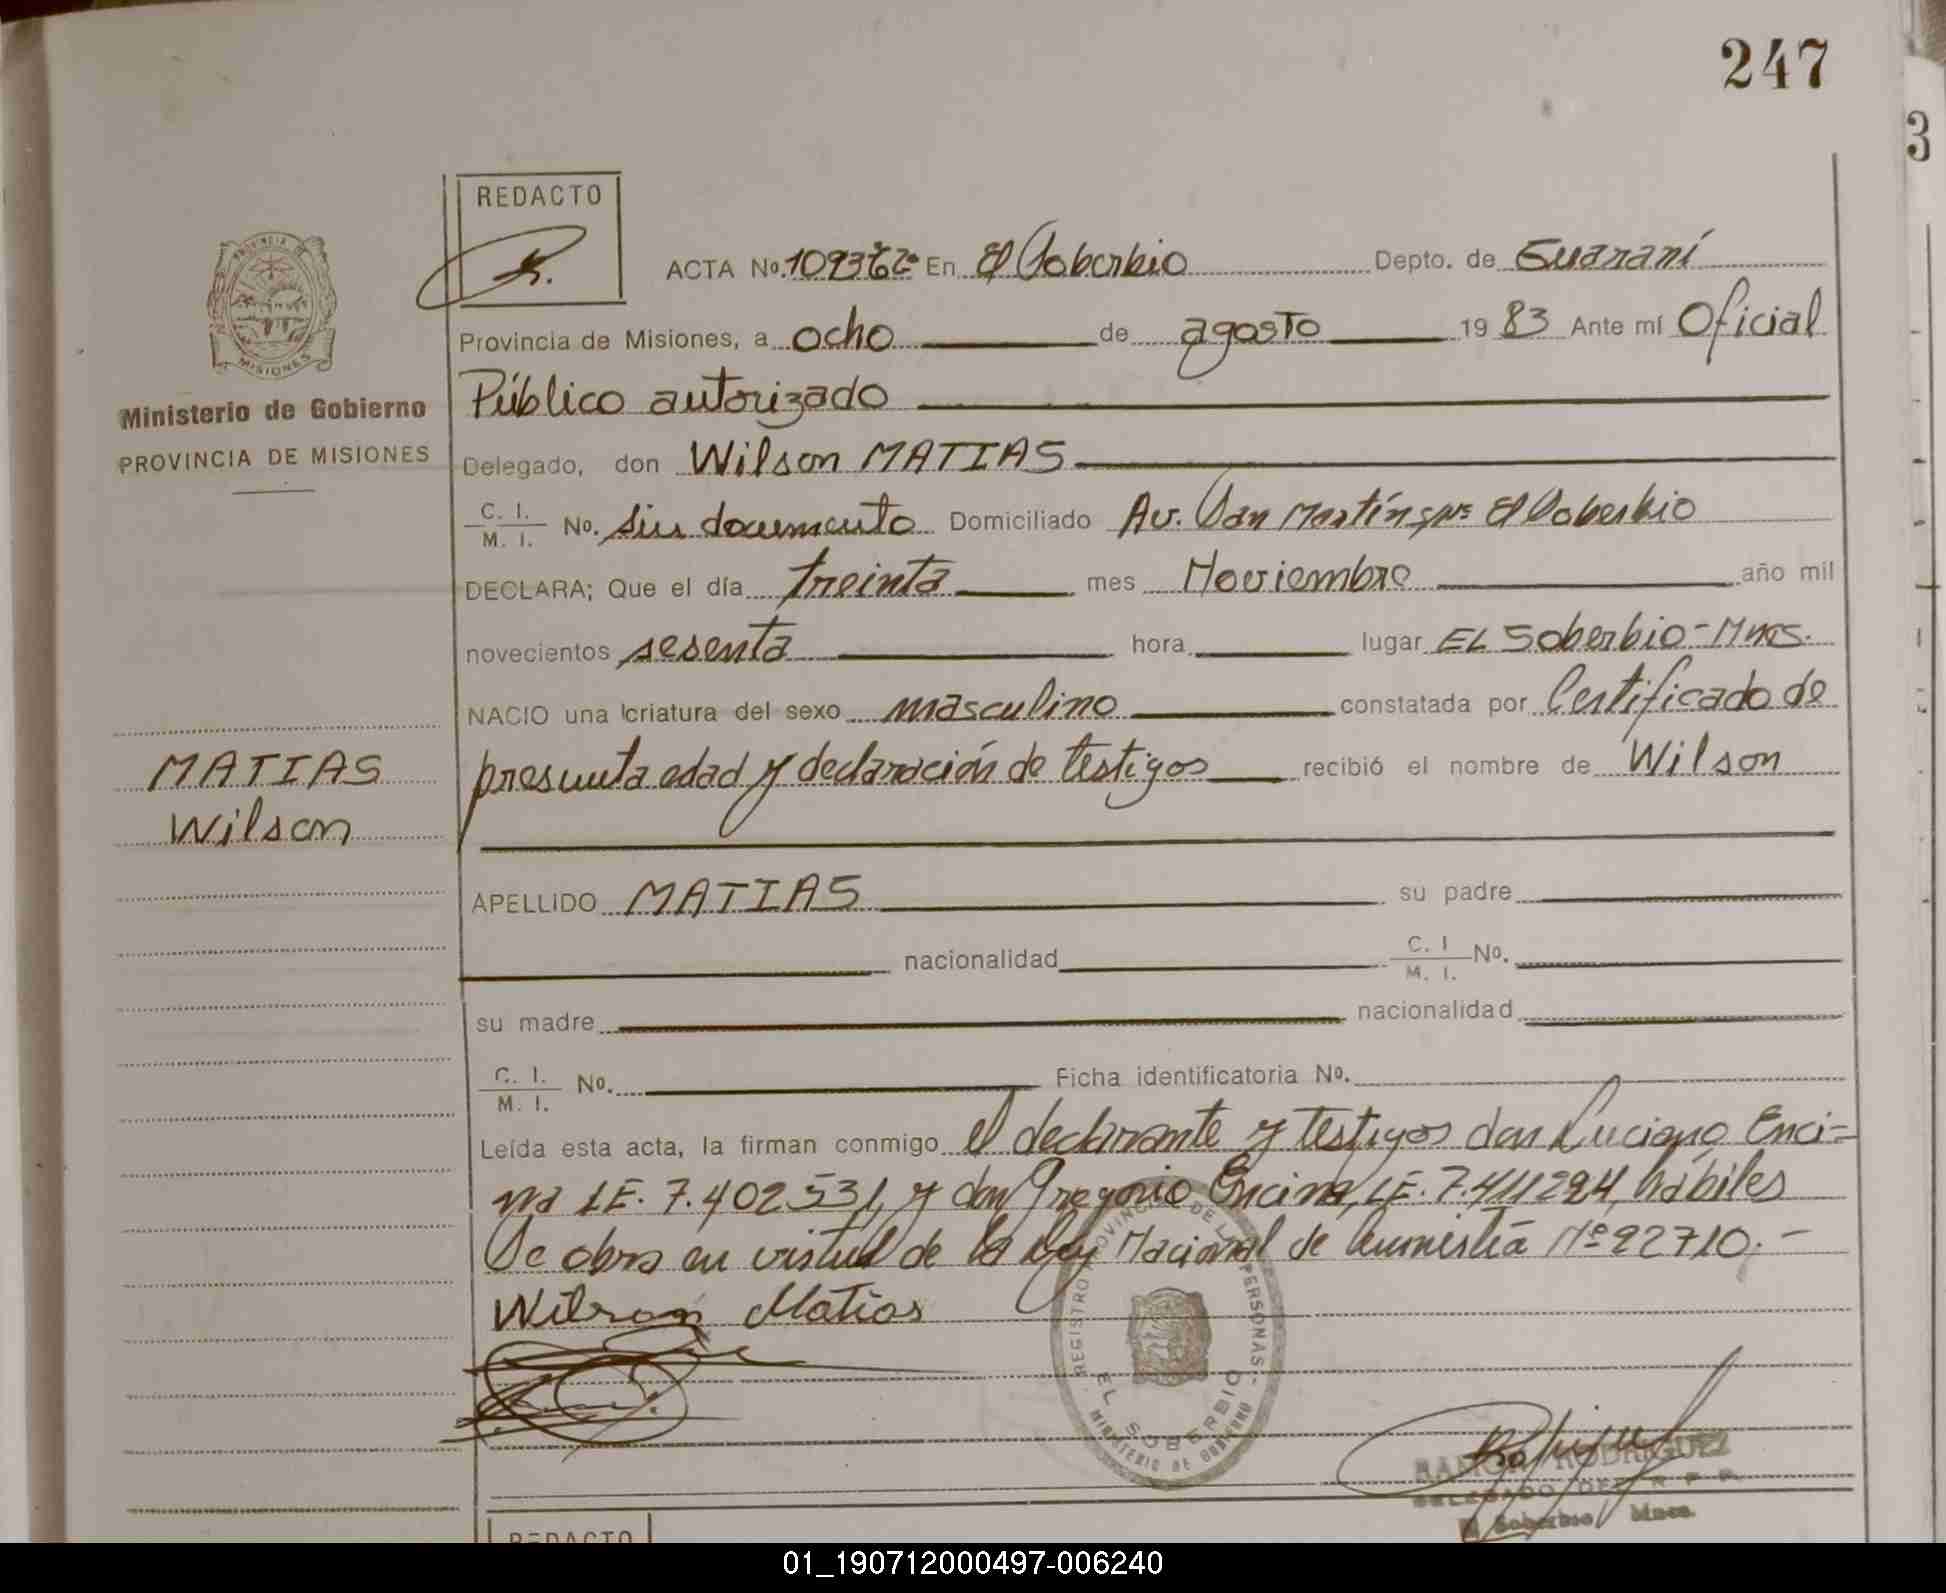 247
3
REDACTO
PROVINCIA DE MISIONES
Ministerio de Gobierno
PROVINCIA DE MISIONES
ACTA No. En El Soberbio Depto. de Guaraní
Provincia de Misiones, a ocho de agosto 19 83 Ante mí Oficial
Público autorizado
Delegado, don Wilson MATIAS
C. I. M. I. No. sin documento Domiciliado Av. San Martín El Soberbio
DECLARA; Que el día treinta mes Noviembre año mil
novecientos sesenta hora lugar EL Soberbio-Mnes.
NACIO una criatura del sexo masculino constatada por Certificado de
MATIAS
presunta edad y declaración de testigos recibió el nombre de Wilson
Wilson
APELLIDO MATIAS su padre
nacionalidad C. I M. I. No.
su madre nacionalidad
C. I. M. I. No. Ficha identificatoria No.
Leída esta acta, la firman conmigo el declarante y testigos don Luciano Enci=
na LE. 7.402531, y don Gregorio Encina, LE. 7.411294, hábiles
Se obra en virtud de la Ley Nacional de Amnistía Nº 22710.-
Wilson Matias
REGISTRO PROVINCIAL DE LAS PERSONAS
EL SOBERBIO
MINISTERIO DE GOBIERNO
RAMON RODRIGUEZ
DELEGADO DEL R. P. P.
El Soberbio Mnes.
REDACTO
01_190712000497-006240